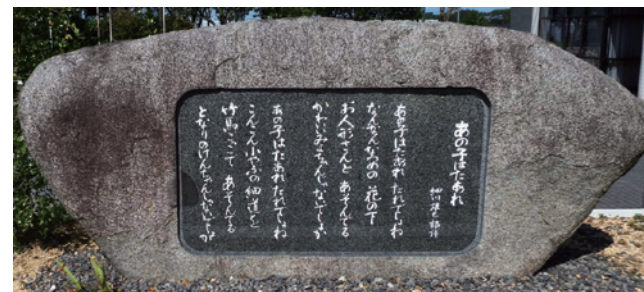 あの子はたあれ
細川雄太郎 詩
あの子はたあれ たれでしょね
なんなんなつめの 花の下
お人形さんと あそんでる
かわいいみよちゃんじゃないでしょか
あの子はたあれ たれでしょね
こんこん小やぶの 細道を
竹馬ごっこで あそんでる
となりのけんちゃんじゃないでしょか